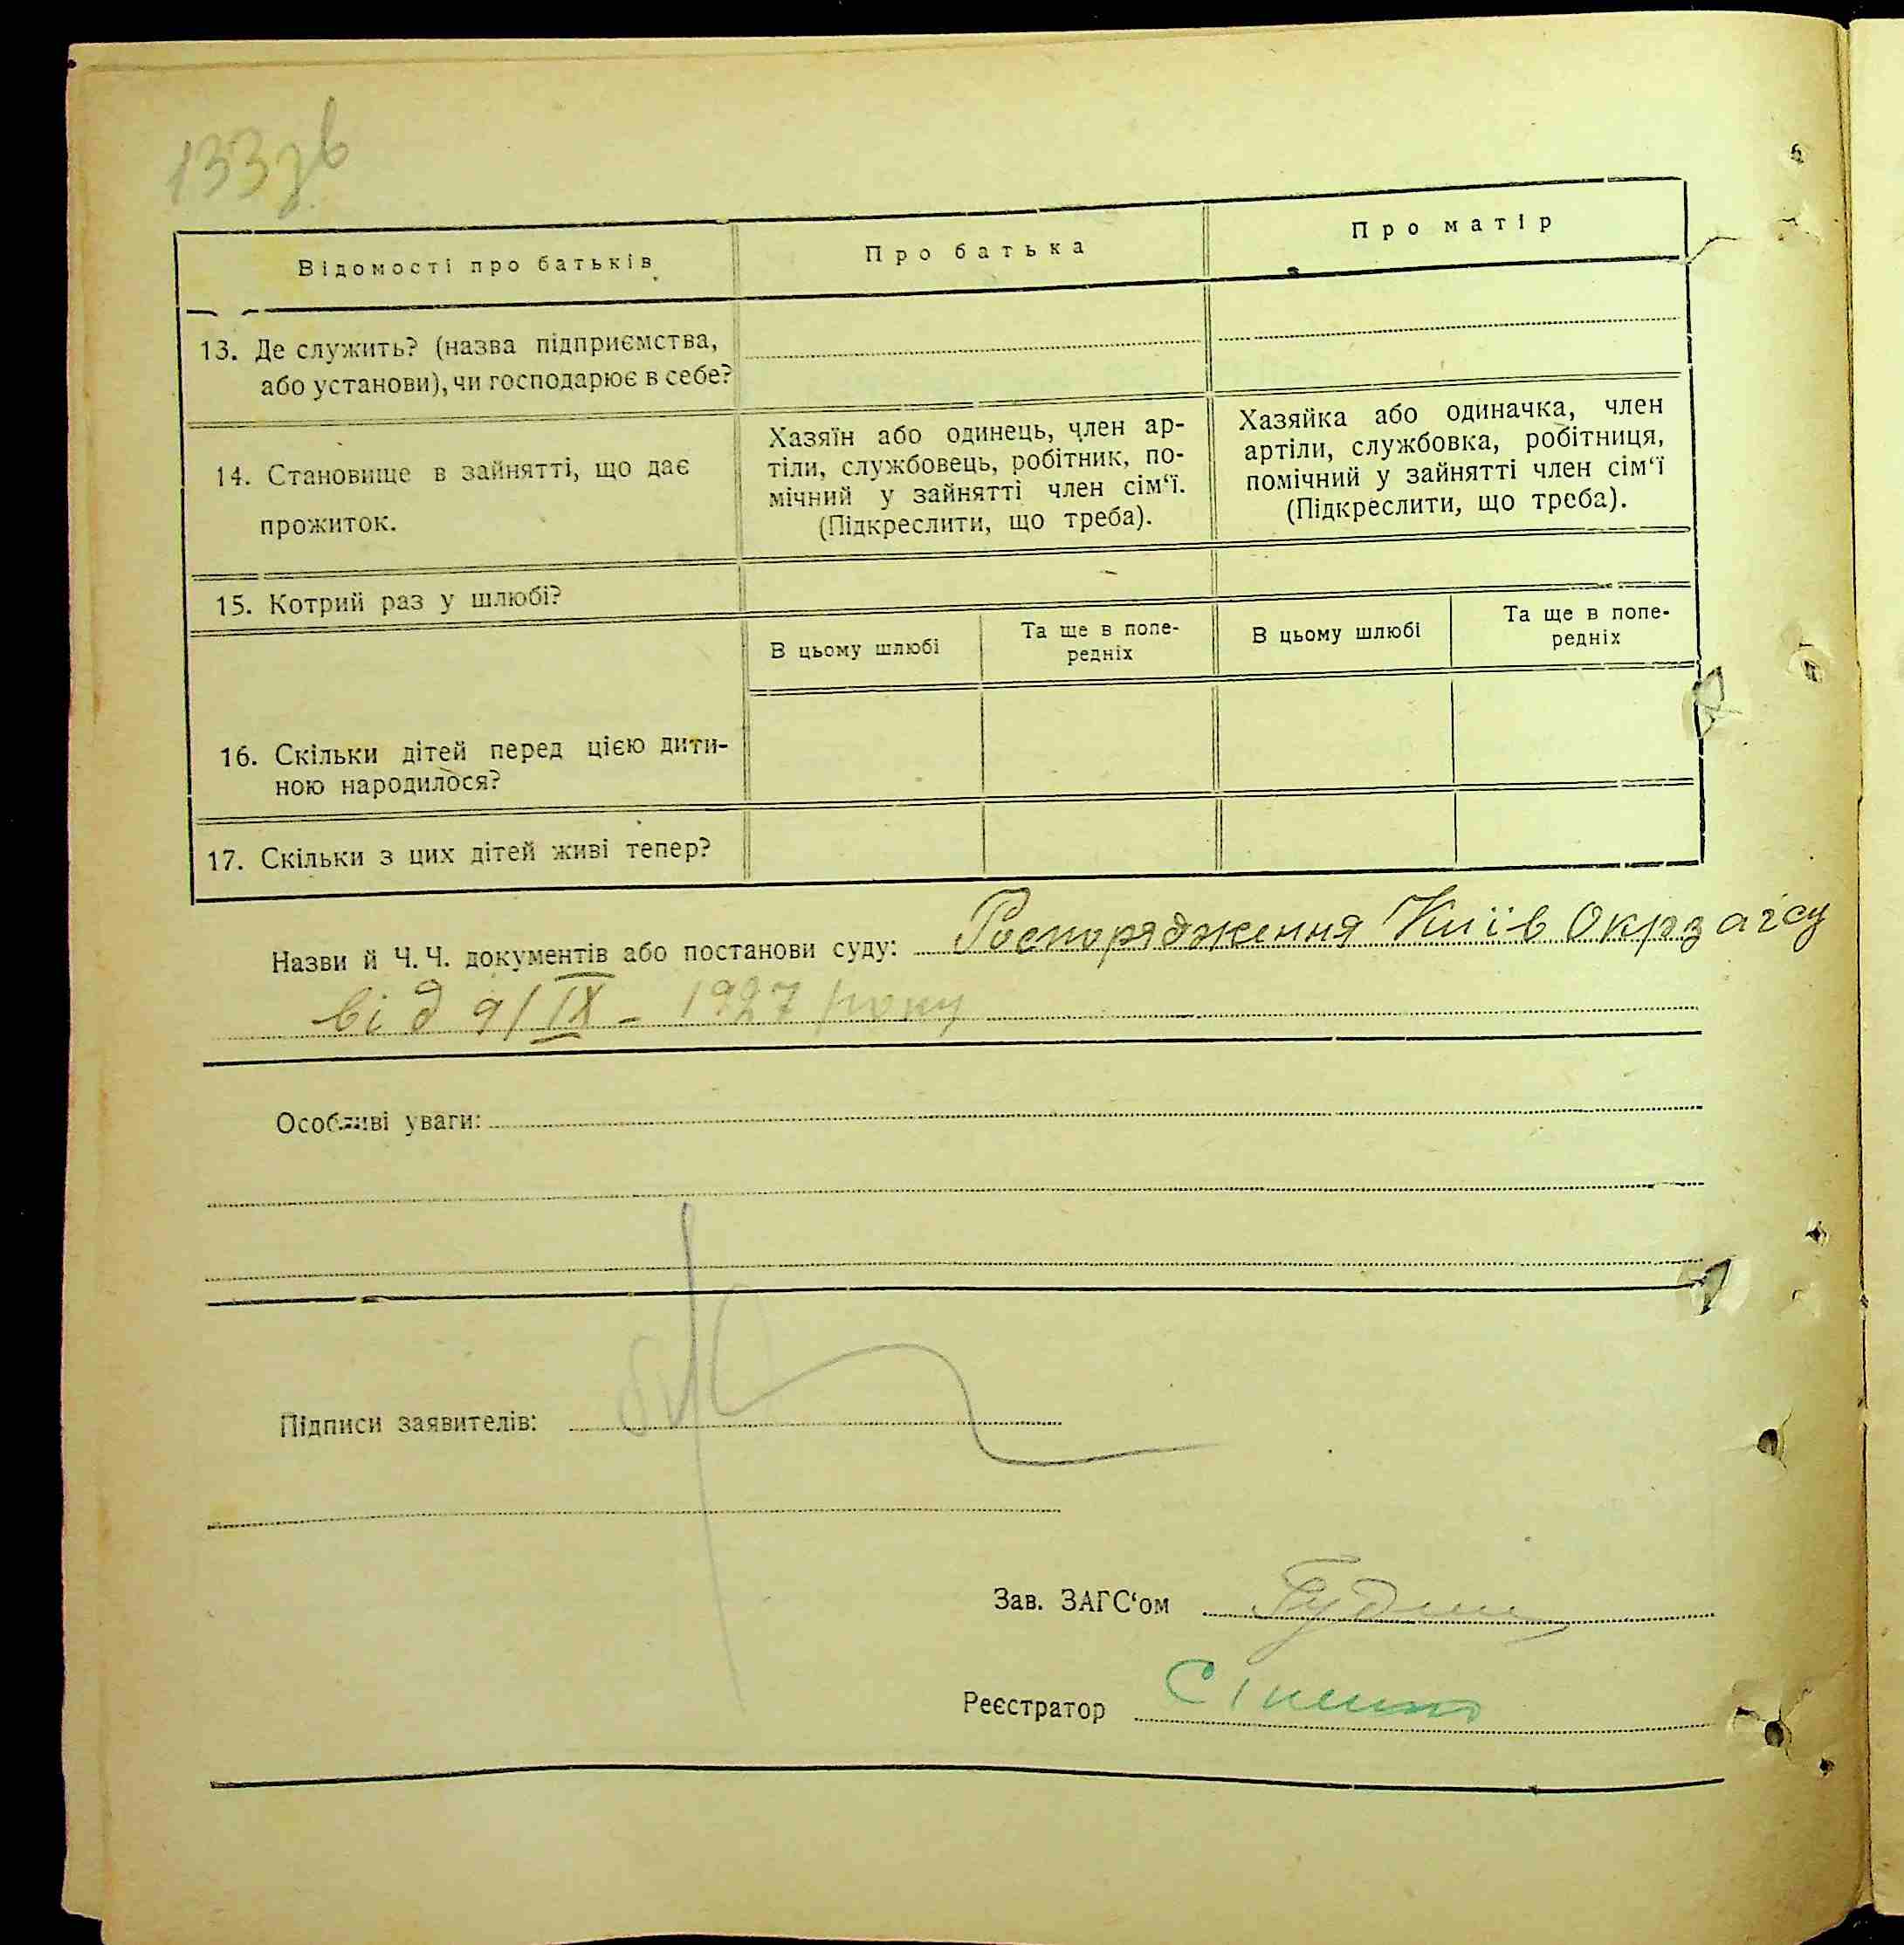 133зв
Відомості про батьків
Про батька
Про матір
13. Де служить? (назва підприємства,
або установи), чи господарює в себе?
14. Становище в зайнятті, що дає
прожиток.
Хазяїн або одинець, член ар-
тіли, службовець, робітник, по-
мічний у зайнятті член сім‘ї.
(Підкреслити, що треба).
Хазяйка або одиначка, член
артіли, службовка, робітниця,
помічний у зайнятті член сім‘ї
(Підкреслити, що треба).
15. Котрий раз у шлюбі?
В цьому шлюбі
Та ще в попе-
редніх
В цьому шлюбі
Та ще в попе-
редніх
16. Скільки дітей перед цією дити-
ною народилося?
17. Скільки з цих дітей живі тепер?
Назви й Ч. Ч. документів або постанови суду: Роспорядження Київ Окрзагсу
від 9/IX - 1927 року
Особливі уваги:
Підписи заявителів:
Зав. ЗАГС‘ом
Реєстратор